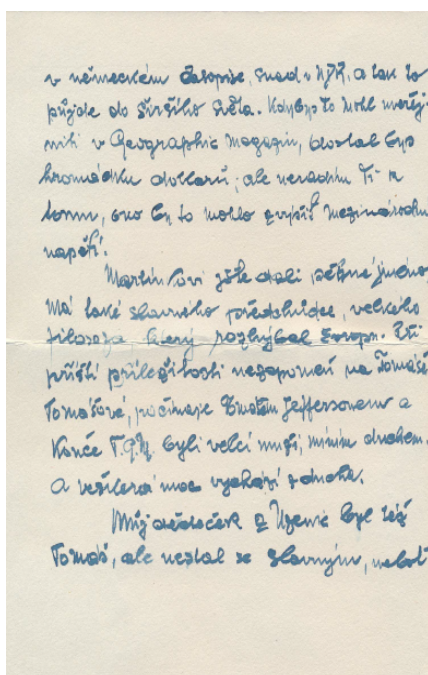 v německém časopise, snad v NDR, a tak to
přijde do širšího světa. Kdybys to mohl uveřej-
niti v Geographic Magazin, dostal bys
hromádku dollarů, ale neradím Ti k
tomu, ono by to mohlo zvýšit mezinárodní
napětí.
Martinkovi jste dali pěkné jméno,
má také slavného předchůdce, velkého
filosofa který rozhýbal Evropu. Při
příští příležitosti nezapomeň na Tomáše
Tomášové, počínaje Tomášem Jeffersonem a
konče T.G.M. byli velcí muži, míním duchem.
A veškerá moc vychází z ducha.
Můj dědeček z Uženic byl též
Tomáš, ale nestal se slavným, neboť